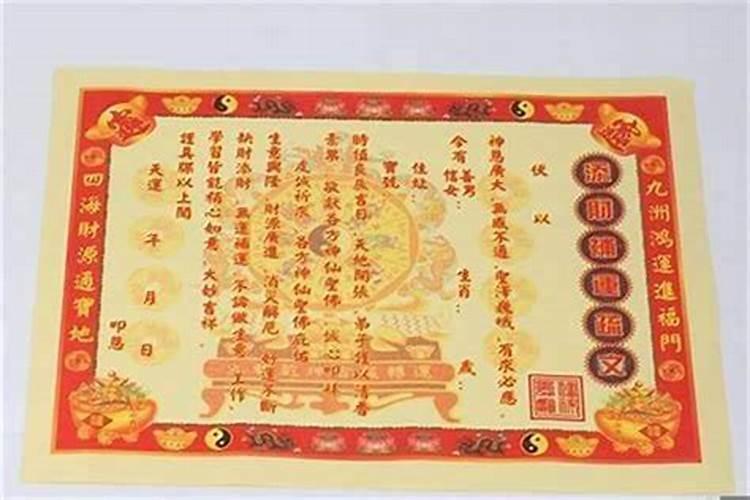 九洲鴻運進福門
添財補運疏文
伏以
神恩廣大 無感不通 聖澤巍峨 有求必應
今有善男信女： 生肖： 歲：
住址：
寶號
時值良辰吉日 天地開張 弟子僅以清香
素果 敬獻各方神仙聖佛 誠心叩拜
虔誠祈求 各方神仙聖佛庇佑
生意興隆 財源廣進 消災解厄 好運不斷
缺財添財 無運補運 不論做生意、工作、
學習皆能稱心如意 大妙吉祥
謹具疏以上聞
天運 年 月 日
叩恩
四海財源通寶地